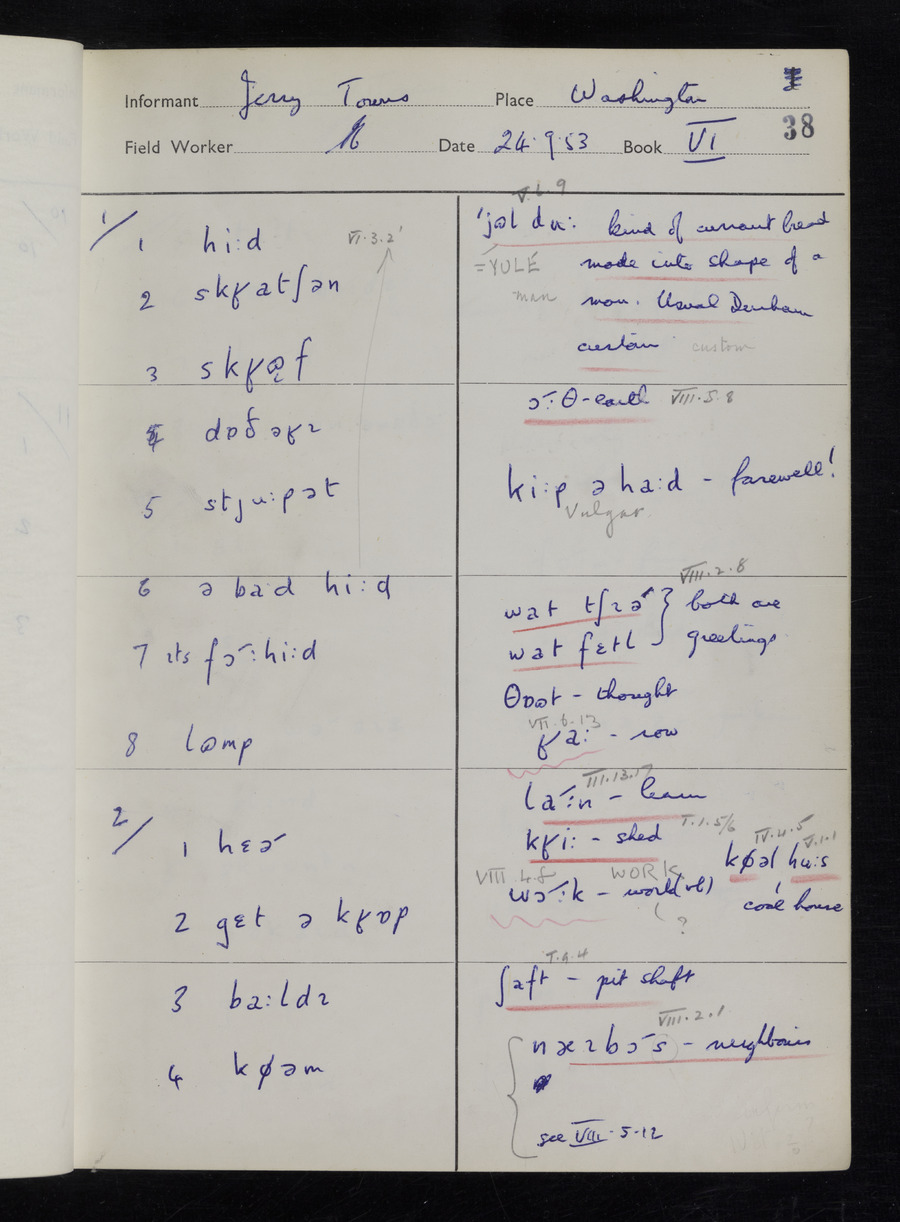 Informant Jerry Towns Place Washington
38
Field Worker Date 24.9.53 Book VI
1/
1 hiːd VI.3.2
2 skʁatʃən
3 skʁɒf
4 dɒðəʁz
5 stjuːpət
6 ə bad hiːd
7 ɪts fɔːhiːd
8 lɒmp
2/
1 hɛə
2 gɛt ə kʁɒp
3 baːldɪ
4 køəm
V.6.9
ˈjəl duː kind of currant bread
=YULE made into shape of a
man man. Usual Durham
custom custom
ɔːθ - earth VIII.5.8
kiːp ə haːd - farewell!
Vulgar
VIII.2.8
wat tʃɪə } both are
wat fɛtl } greetings
θɒət - thought
VII.6.13
ʁaː - row
III.13.17
laːn - learn
kʁiː - shed T.1.5/6
IV.4.5 V.1.1
køəl huːs
coal house
VIII.4.8 WORK
wɔːk - world(vb)
?
T.a.4
ʃaft - pit shaft
VIII.2.1
næɪbɔs - neighbours
see VIII.5.12